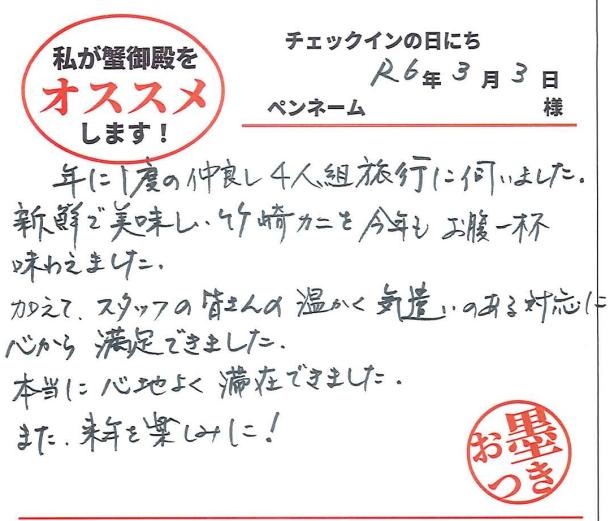 私が蟹御殿を
オススメ
します！
チェックインの日にち
R6年3月3日
ペンネーム 様
年に1度の仲良し4人組旅行に伺いました。
新鮮で美味しい竹崎カニを今年もお腹一杯
味わえました。
加えて、スタッフの皆さんの温かく気遣いのある対応に
心から満足できました。
本当に心地よく滞在できました。
また、来年を楽しみに！
お墨
つき